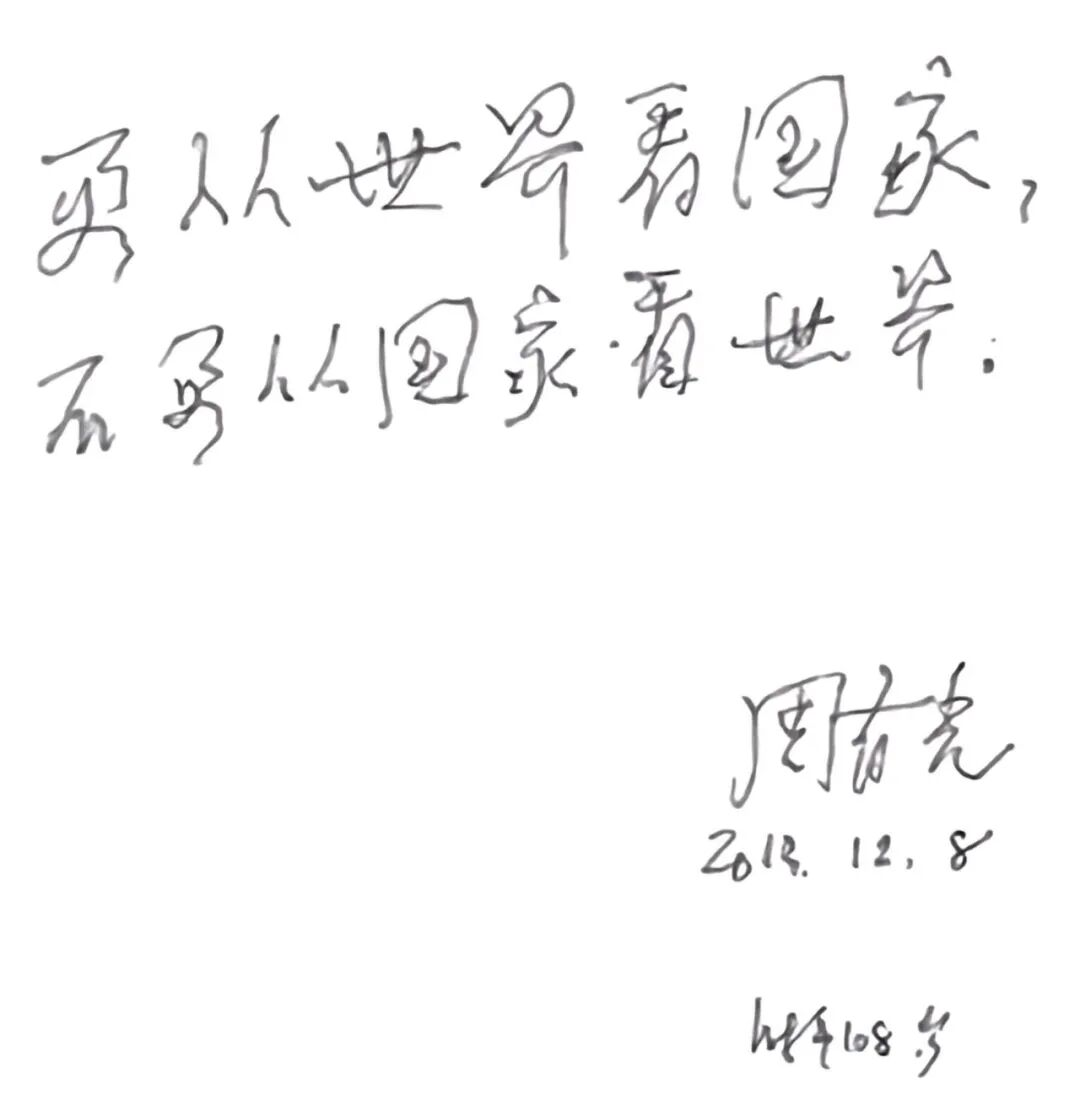 要从世界看国家,
不要从国家看世界.
周有光
2013.12.8
时年108岁